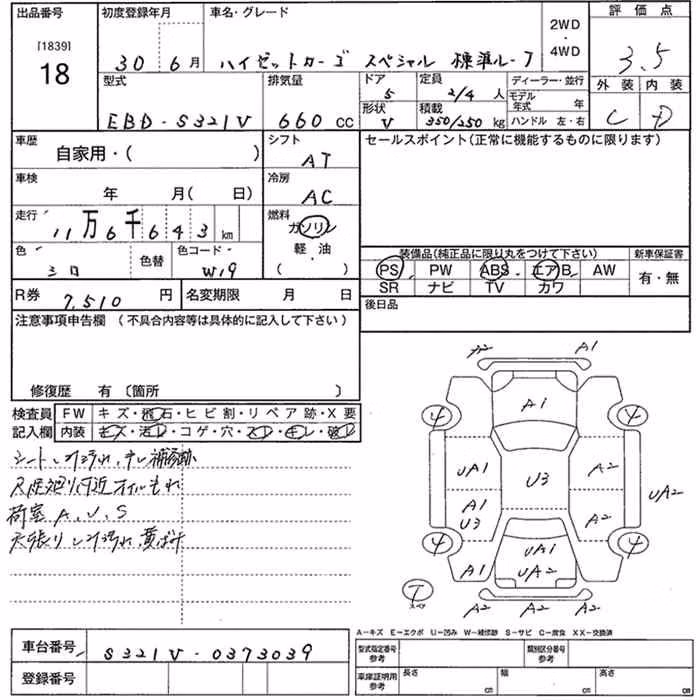 出品番号 初度登録年月 車名・グレード 2WD・4WD 評価点
[1839]
18 30 6月 ハイゼットカーゴ スペシャル 標準ルーフ 3.5
型式 排気量 ドア 5 定員 2/4 人 ディーラー・並行 外装 内装
EBD-S321V 660 CC 形状 V 積載 350/250 kg モデル年式 年 ハンドル 左・右 C D
車歴 シフト セールスポイント(正常に機能するものに限ります)
自家用・( ) AT
車検 冷房
年 月( 日) AC
走行 燃料
11万6千643km ガソリン
軽・油
( )
色 色替 色コード 装備品(純正品に限り丸をつけて下さい) 新車保証書
シロ W19 PS PW ABS エアB AW 有・無
SR ナビ TV カワ
R券 7,510 円 名変期限 月 日 後日品
注意事項申告欄 (不具合内容等は具体的に記入して下さい)
修復歴 有〔箇所 〕
検査員 FW キズ・飛石・ヒビ割・リペア跡・X要
記入欄 内装 キズ・汚レ・コゲ・穴・スレ・キレ・破レ
シート 汚れ、補修跡
オイルもれ
荷室 A、U、S
天張り 汚れ
A2 A1
4 A1 4
UA1 U3 A2
A1 U3 A2 UA2
4 UA1 4
A1 UA2 A2
T スペア A2 A2
A-キズ E-エクボ U-凹み W-補修跡 S-サビ C-腐食 XX-交換済
車台番号 S321V-0373039 型式指定番号 参考 類別区分番号 参考
登録番号 車庫証明用 参考 長さ cm 幅 cm 高さ cm